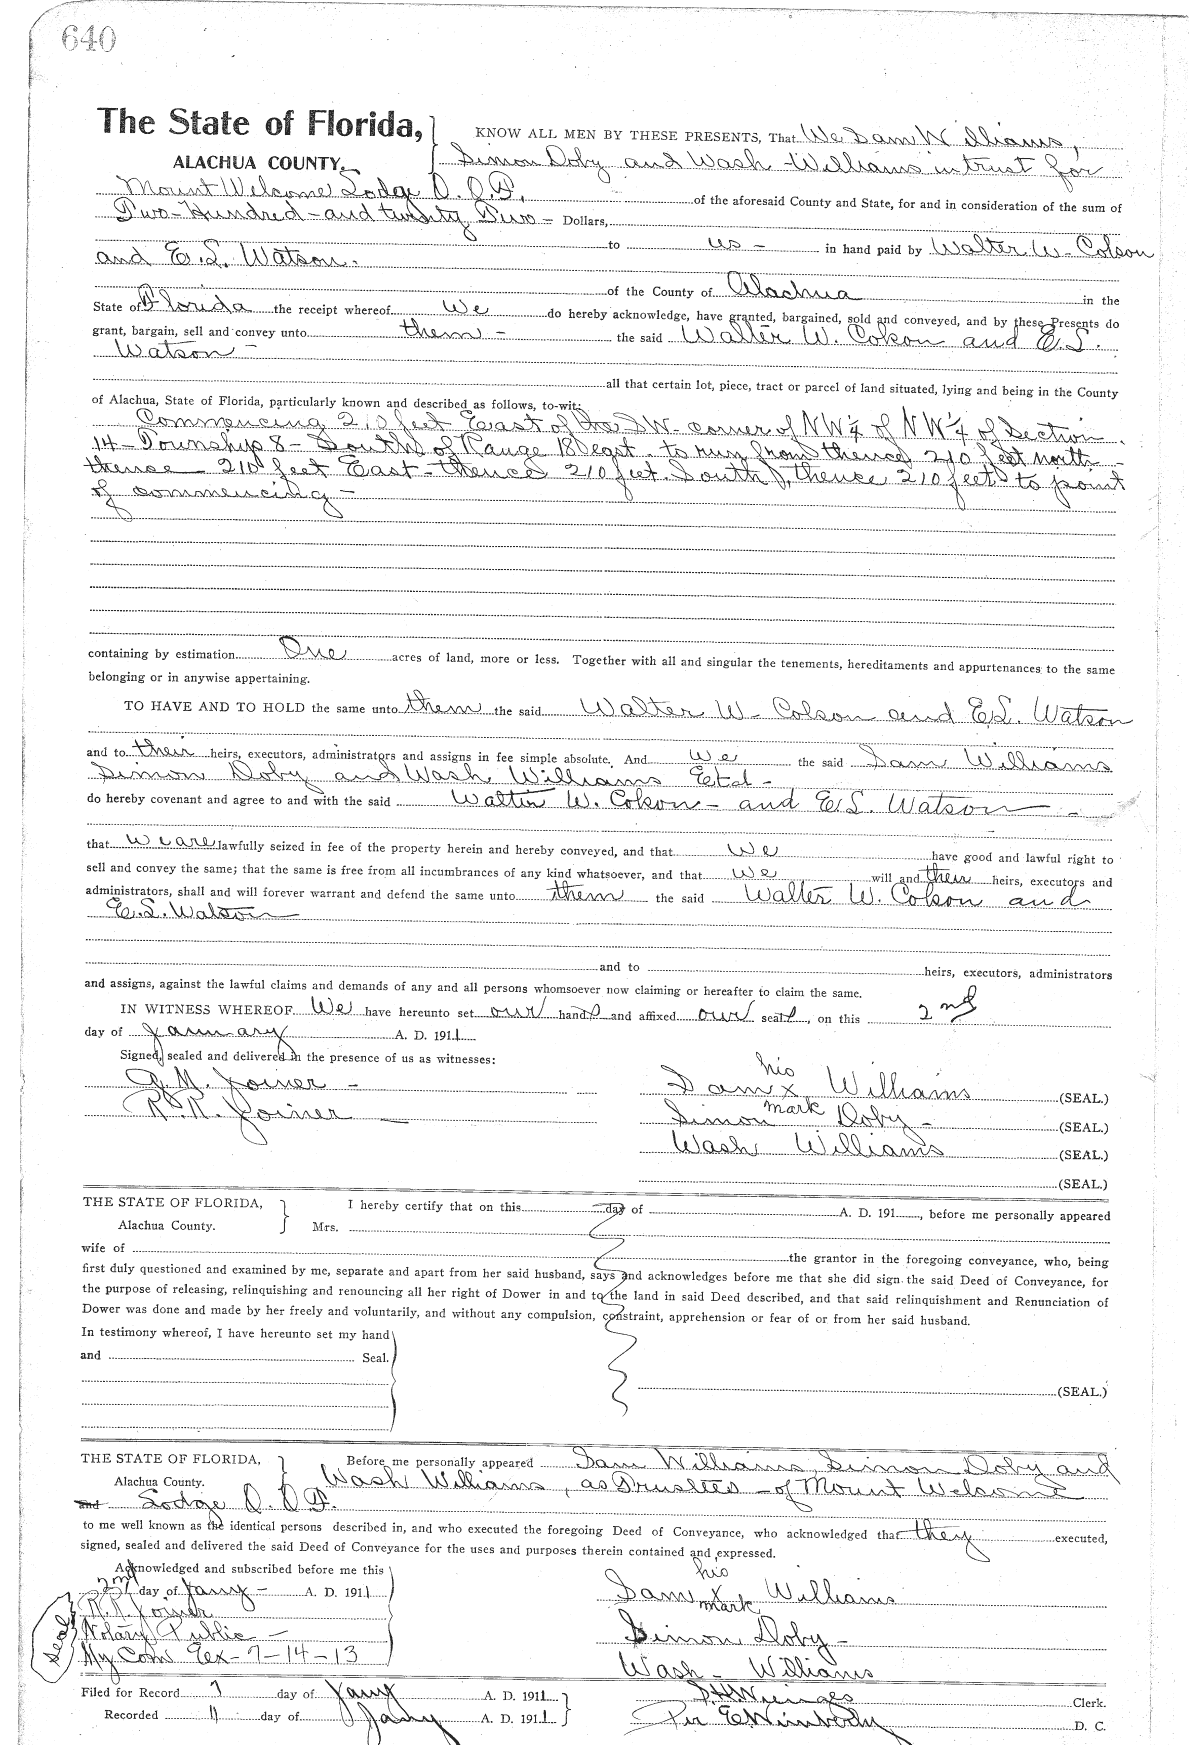 640
The State of Florida, KNOW ALL MEN BY THESE PRESENTS, That We Sam Williams,
ALACHUA COUNTY. Simon Doby and Wash Williams in trust for
Mount Welcome Lodge O. O. F. of the aforesaid County and State, for and in consideration of the sum of
Two-Hundred-and twenty Two- Dollars,
to us - in hand paid by Walter W. Colson
and E. S. Watson.
of the County of Alachua in the
State of Florida the receipt whereof We do hereby acknowledge, have granted, bargained, sold and conveyed, and by these Presents do
grant, bargain, sell and convey unto them - the said Walter W. Colson and E. S.
Watson -
all that certain lot, piece, tract or parcel of land situated, lying and being in the County
of Alachua, State of Florida, particularly known and described as follows, to-wit:
Commencing 210 feet East of the SW- corner of NW¼ of NW¼ of Section
14- Township 8- South of Range 18 East. to run from thence 210 feet north -
thence - 210 feet East - thence 210 feet South, thence 210 feet to point
of commencing -
containing by estimation One acres of land, more or less. Together with all and singular the tenements, hereditaments and appurtenances to the same
belonging or in anywise appertaining.
TO HAVE AND TO HOLD the same unto them the said Walter W- Colson and E. S. Watson
and to their heirs, executors, administrators and assigns in fee simple absolute. And we the said Sam Williams
Simon Doby and Wash Williams Etd -
do hereby covenant and agree to and with the said Walter W. Colson - and E. S. Watson -
that we are lawfully seized in fee of the property herein and hereby conveyed, and that we have good and lawful right to
sell and convey the same; that the same is free from all incumbrances of any kind whatsoever, and that we will and their heirs, executors and
administrators, shall and will forever warrant and defend the same unto them the said Walter W. Colson and
E. S. Watson
and to heirs, executors, administrators
and assigns, against the lawful claims and demands of any and all persons whomsoever now claiming or hereafter to claim the same.
IN WITNESS WHEREOF We have hereunto set our hands and affixed our seals, on this 2nd
day of January A. D. 1911
Signed, sealed and delivered in the presence of us as witnesses:
G. M. Joiner - Sam his x mark Williams (SEAL.)
R. R. Joiner Simon Doby - (SEAL.)
Wash Williams (SEAL.)
(SEAL.)
THE STATE OF FLORIDA, I hereby certify that on this day of A. D. 191 , before me personally appeared
Alachua County. Mrs.
wife of the grantor in the foregoing conveyance, who, being
first duly questioned and examined by me, separate and apart from her said husband, says and acknowledges before me that she did sign the said Deed of Conveyance, for
the purpose of releasing, relinquishing and renouncing all her right of Dower in and to the land in said Deed described, and that said relinquishment and Renunciation of
Dower was done and made by her freely and voluntarily, and without any compulsion, constraint, apprehension or fear of or from her said husband.
In testimony whereof, I have hereunto set my hand
and Seal.
(SEAL.)
THE STATE OF FLORIDA, Before me personally appeared Sam Williams, Simon Doby and
Alachua County. Wash Williams, as Trustees - of Mount Welcome
and Lodge O. O. F.
to me well known as the identical persons described in, and who executed the foregoing Deed of Conveyance, who acknowledged that they executed,
signed, sealed and delivered the said Deed of Conveyance for the uses and purposes therein contained and expressed.
Acknowledged and subscribed before me this
2nd day of Jany - A. D. 1911 Sam his x mark Williams
R. R. Joiner
Notary Public - Simon Doby -
Seal My Com Ex- 7-14-13 Wash - Williams
Filed for Record 7 day of Jany A. D. 1911 S. H. Wienges Clerk.
Recorded 11 day of Jany A. D. 1911 Per E Wimberly D. C.